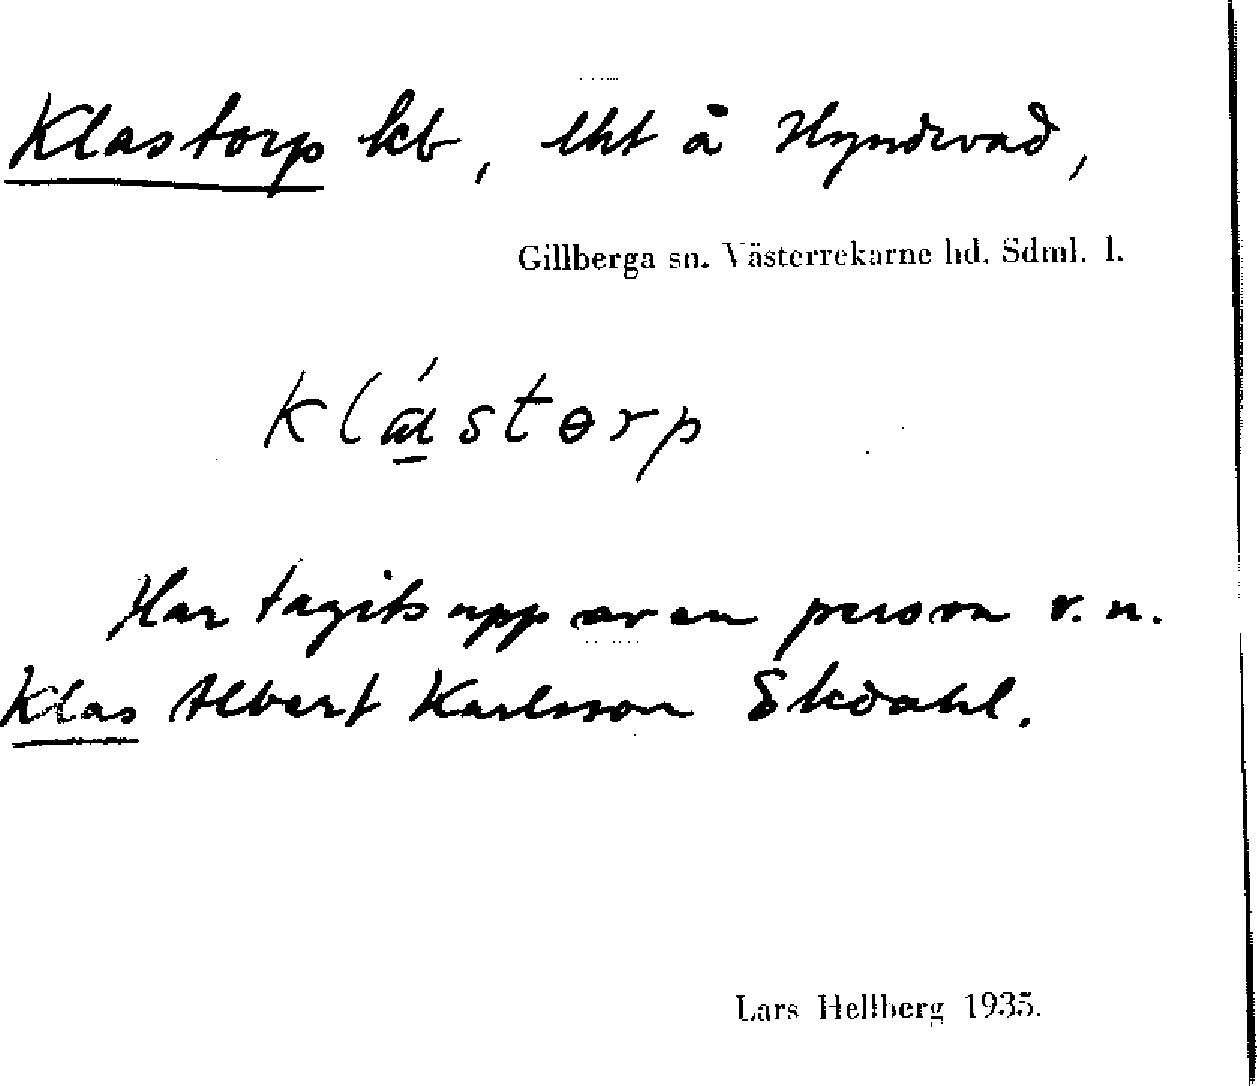 Klastorp kb, lht å Hyndevad,
Gillberga sn. Västerrekarne hd. Sdml. l.
klɑ́stɵrp
Har tagits upp av en person v. n.
Klas Albert Karlsson Ekdahl.
Lars Hellberg 1935.